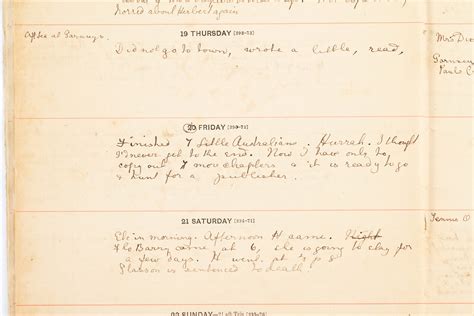 worried about Herbert again
19 THURSDAY [292-73]
Did not go to town, wrote a little, read,
Mrs
20 FRIDAY [293-72]
Finished 7 Little Australians. Hurrah. I thought
I'd never get to the end. Now I have only to
copy out 7 more chapters & it is ready to go
& hunt for a publisher.
21 SATURDAY [294-71]
in morning. Afternoon H came. Night
Flo Barry came at 6, she is going to stay for
a few days. H went at
is sentenced to death.
Tennis
22 SUNDAY